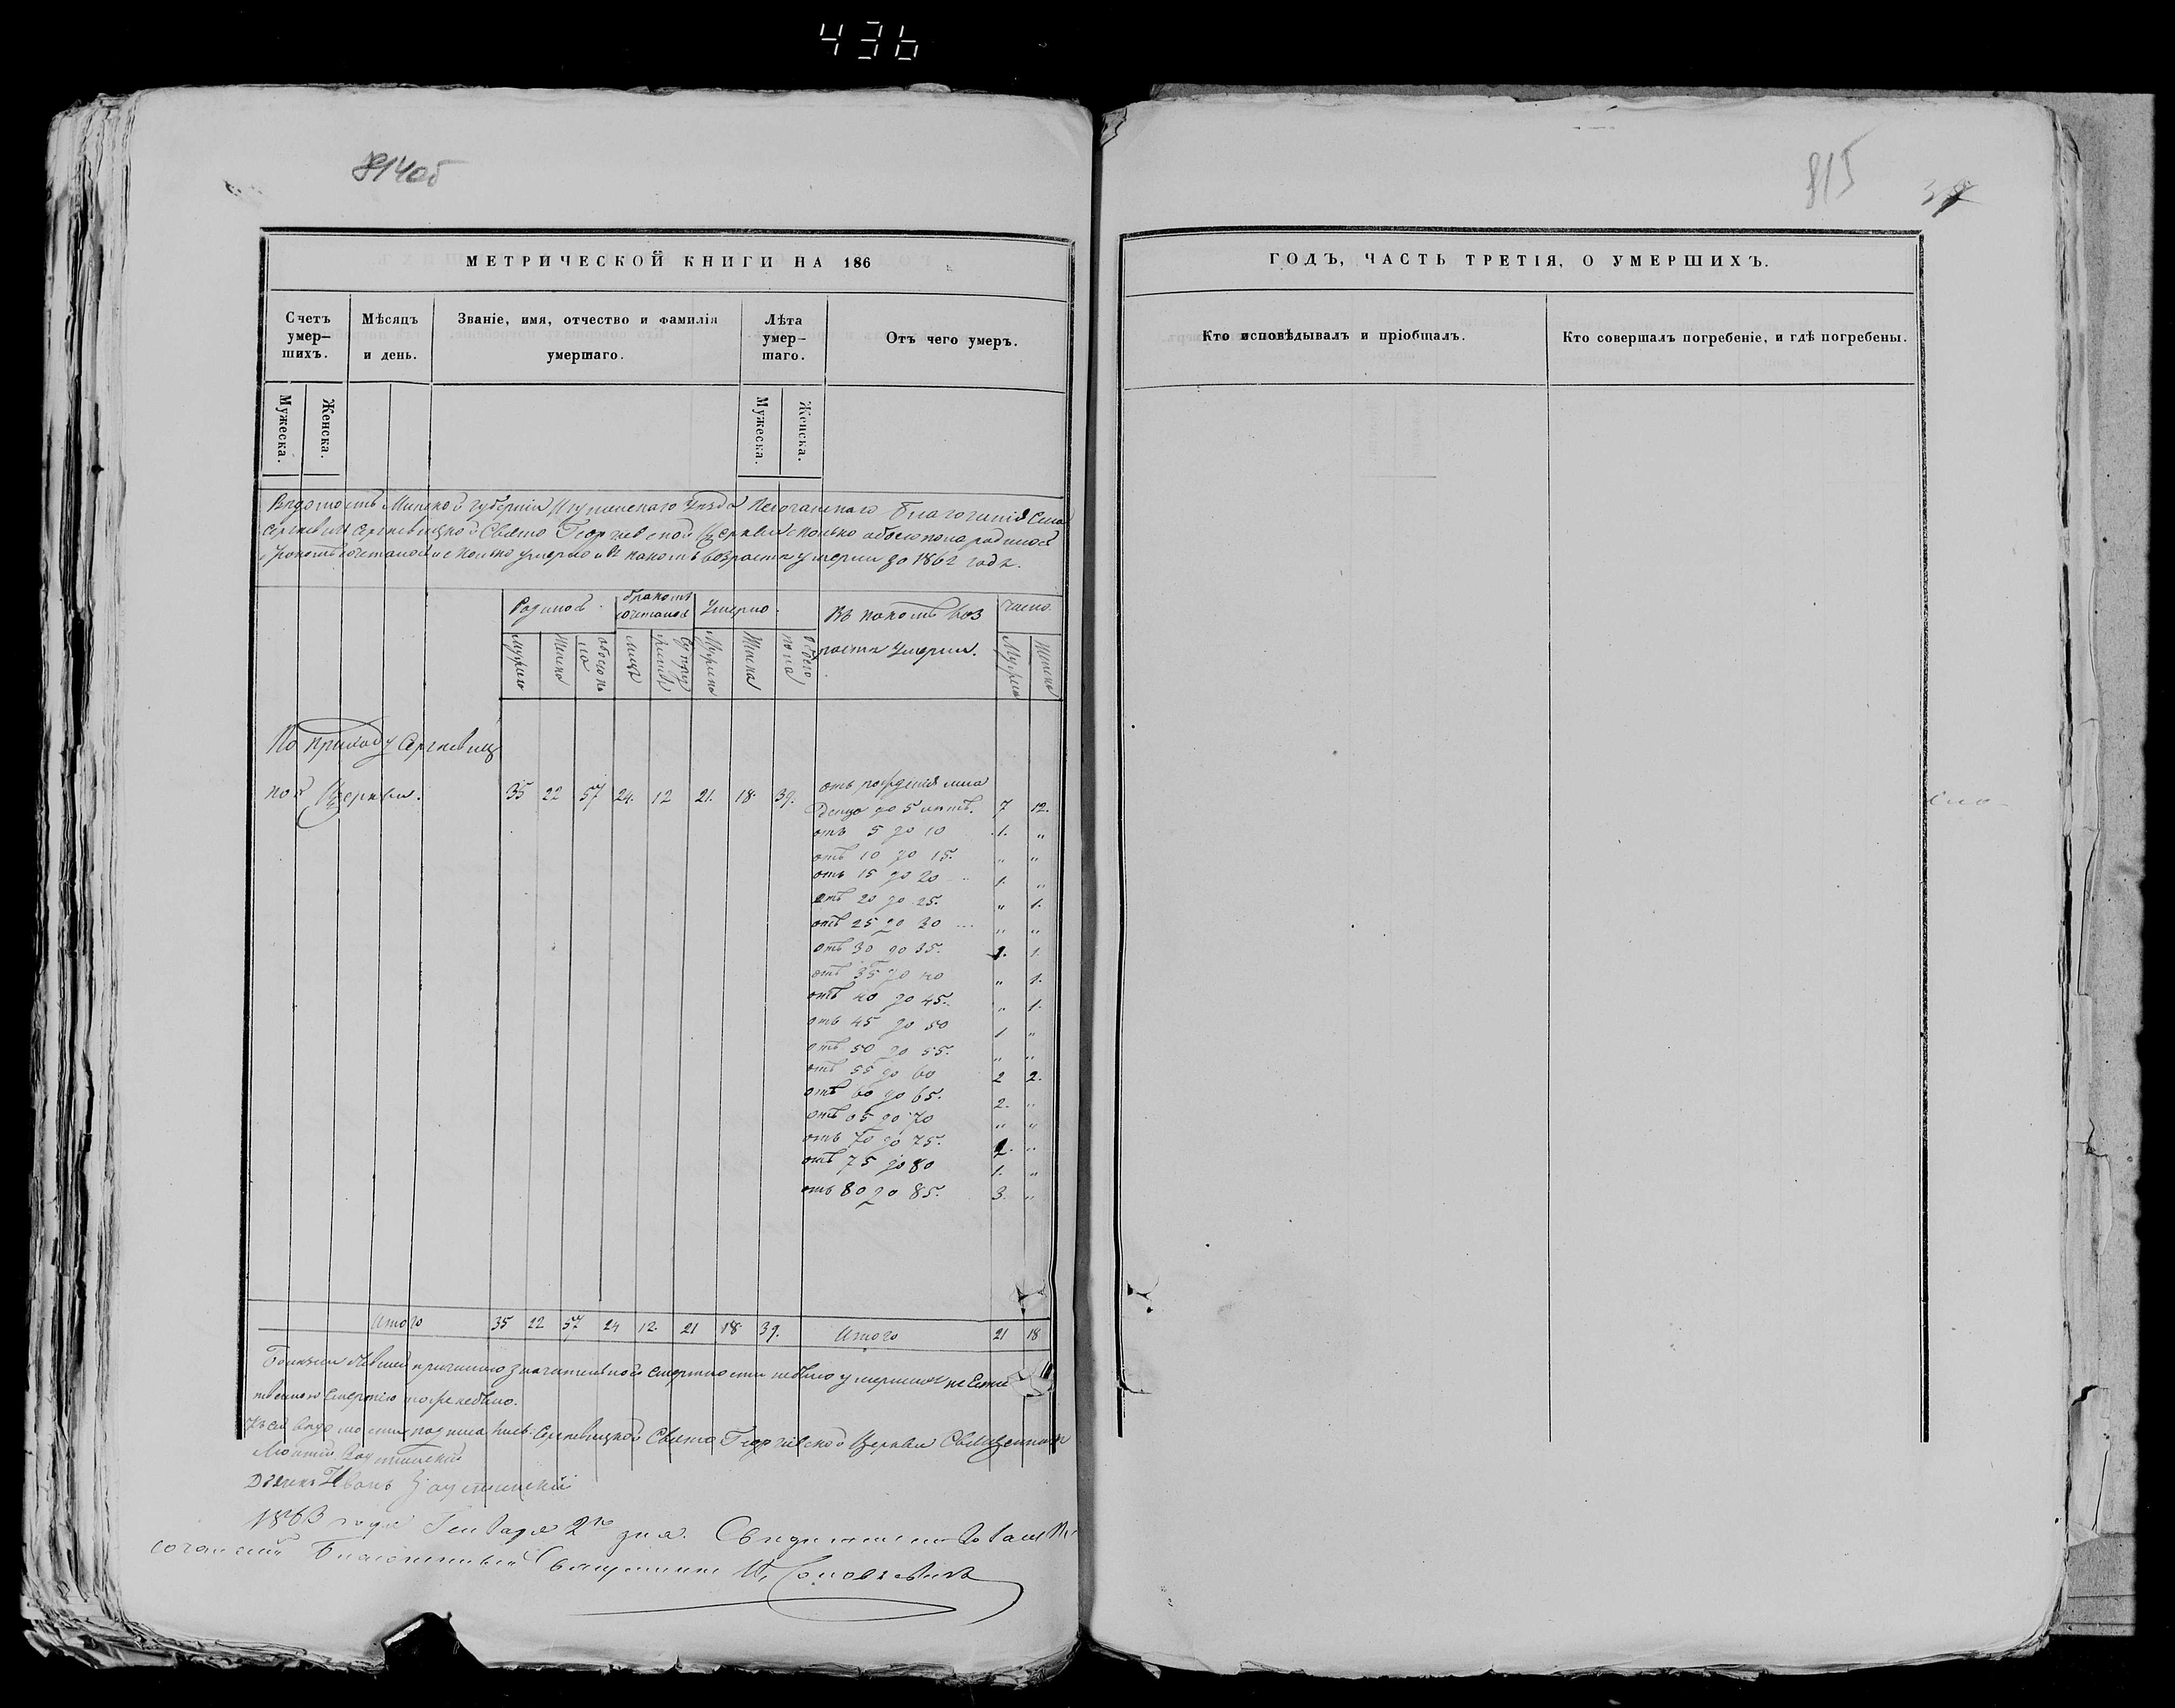 436
814об
815
МЕТРИЧЕСКОЙ КНИГИ НА 186
Счетъ умер-шихъ.
Мѣсяцъ и день.
Званіе, имя, отчество и фамилія умершаго.
Лѣта умер-шаго.
Отъ чего умеръ.
Мужеска.
Женска.
Мужеска.
Женска.
Вѣдомость Минской Губерніи Игуменскаго Уѣзда Песочанскаго Благочинія Села
Сергѣевичъ Сергѣевицкой Свято Георгіевской Церкви сколько обоего пола родилось
сколько умерло и въ какомъ возрастѣ умерли за 1862 годъ.
Родилось
бракомъ сочеталось
Умерло
Въ какомъ воз
раста умерли.
Число
Мужска
Женска
обоего по
ла
лицъ
Супру
жествъ
Мужеска
Женска
обоего
пола
Мужска
Женска
По приходу Сергѣевиц
кой Церкви. 35 22 57 24. 12 21. 18. 39.
отъ рожденія мла
денцо до 5 лѣтъ. 7 12.
отъ 5 до 10 1. „
отъ 10 до 15. „ „
отъ 15 до 20 1. „
отъ 20 до 25. „ 1.
отъ 25 до 30 „ „
отъ 30 до 35. 1. 1.
отъ 35 до 40 „ 1.
отъ 40 до 45. „ 1.
отъ 45 до 50 1 „
отъ 50 до 55. „ „
отъ 55 до 60 2 2.
отъ 60 до 65. 2. „
отъ 65 до 70 „ „
отъ 70 до 75. 2. „
отъ 75 до 80 1. „
отъ 80 до 85. 3. „
Итого 35 22 57 24 12. 21 18 39. Итого 21 18
Болѣзни бывшей причиною значительной смертности небыло умершихъ не Есте
твенною смертію тоже небыло.
Къ сей вѣдомости подписались: Сергѣевицкой Свято Георгіевской Церкви Священникъ
Дьячекъ Иванъ
1863 года Генваря 2го дня.
Благочинный Священникъ
ГОДЪ, ЧАСТЬ ТРЕТІЯ, О УМЕРШИХЪ.
Кто исповѣдывалъ и пріобщалъ.
Кто совершалъ погребеніе, и гдѣ погребены.